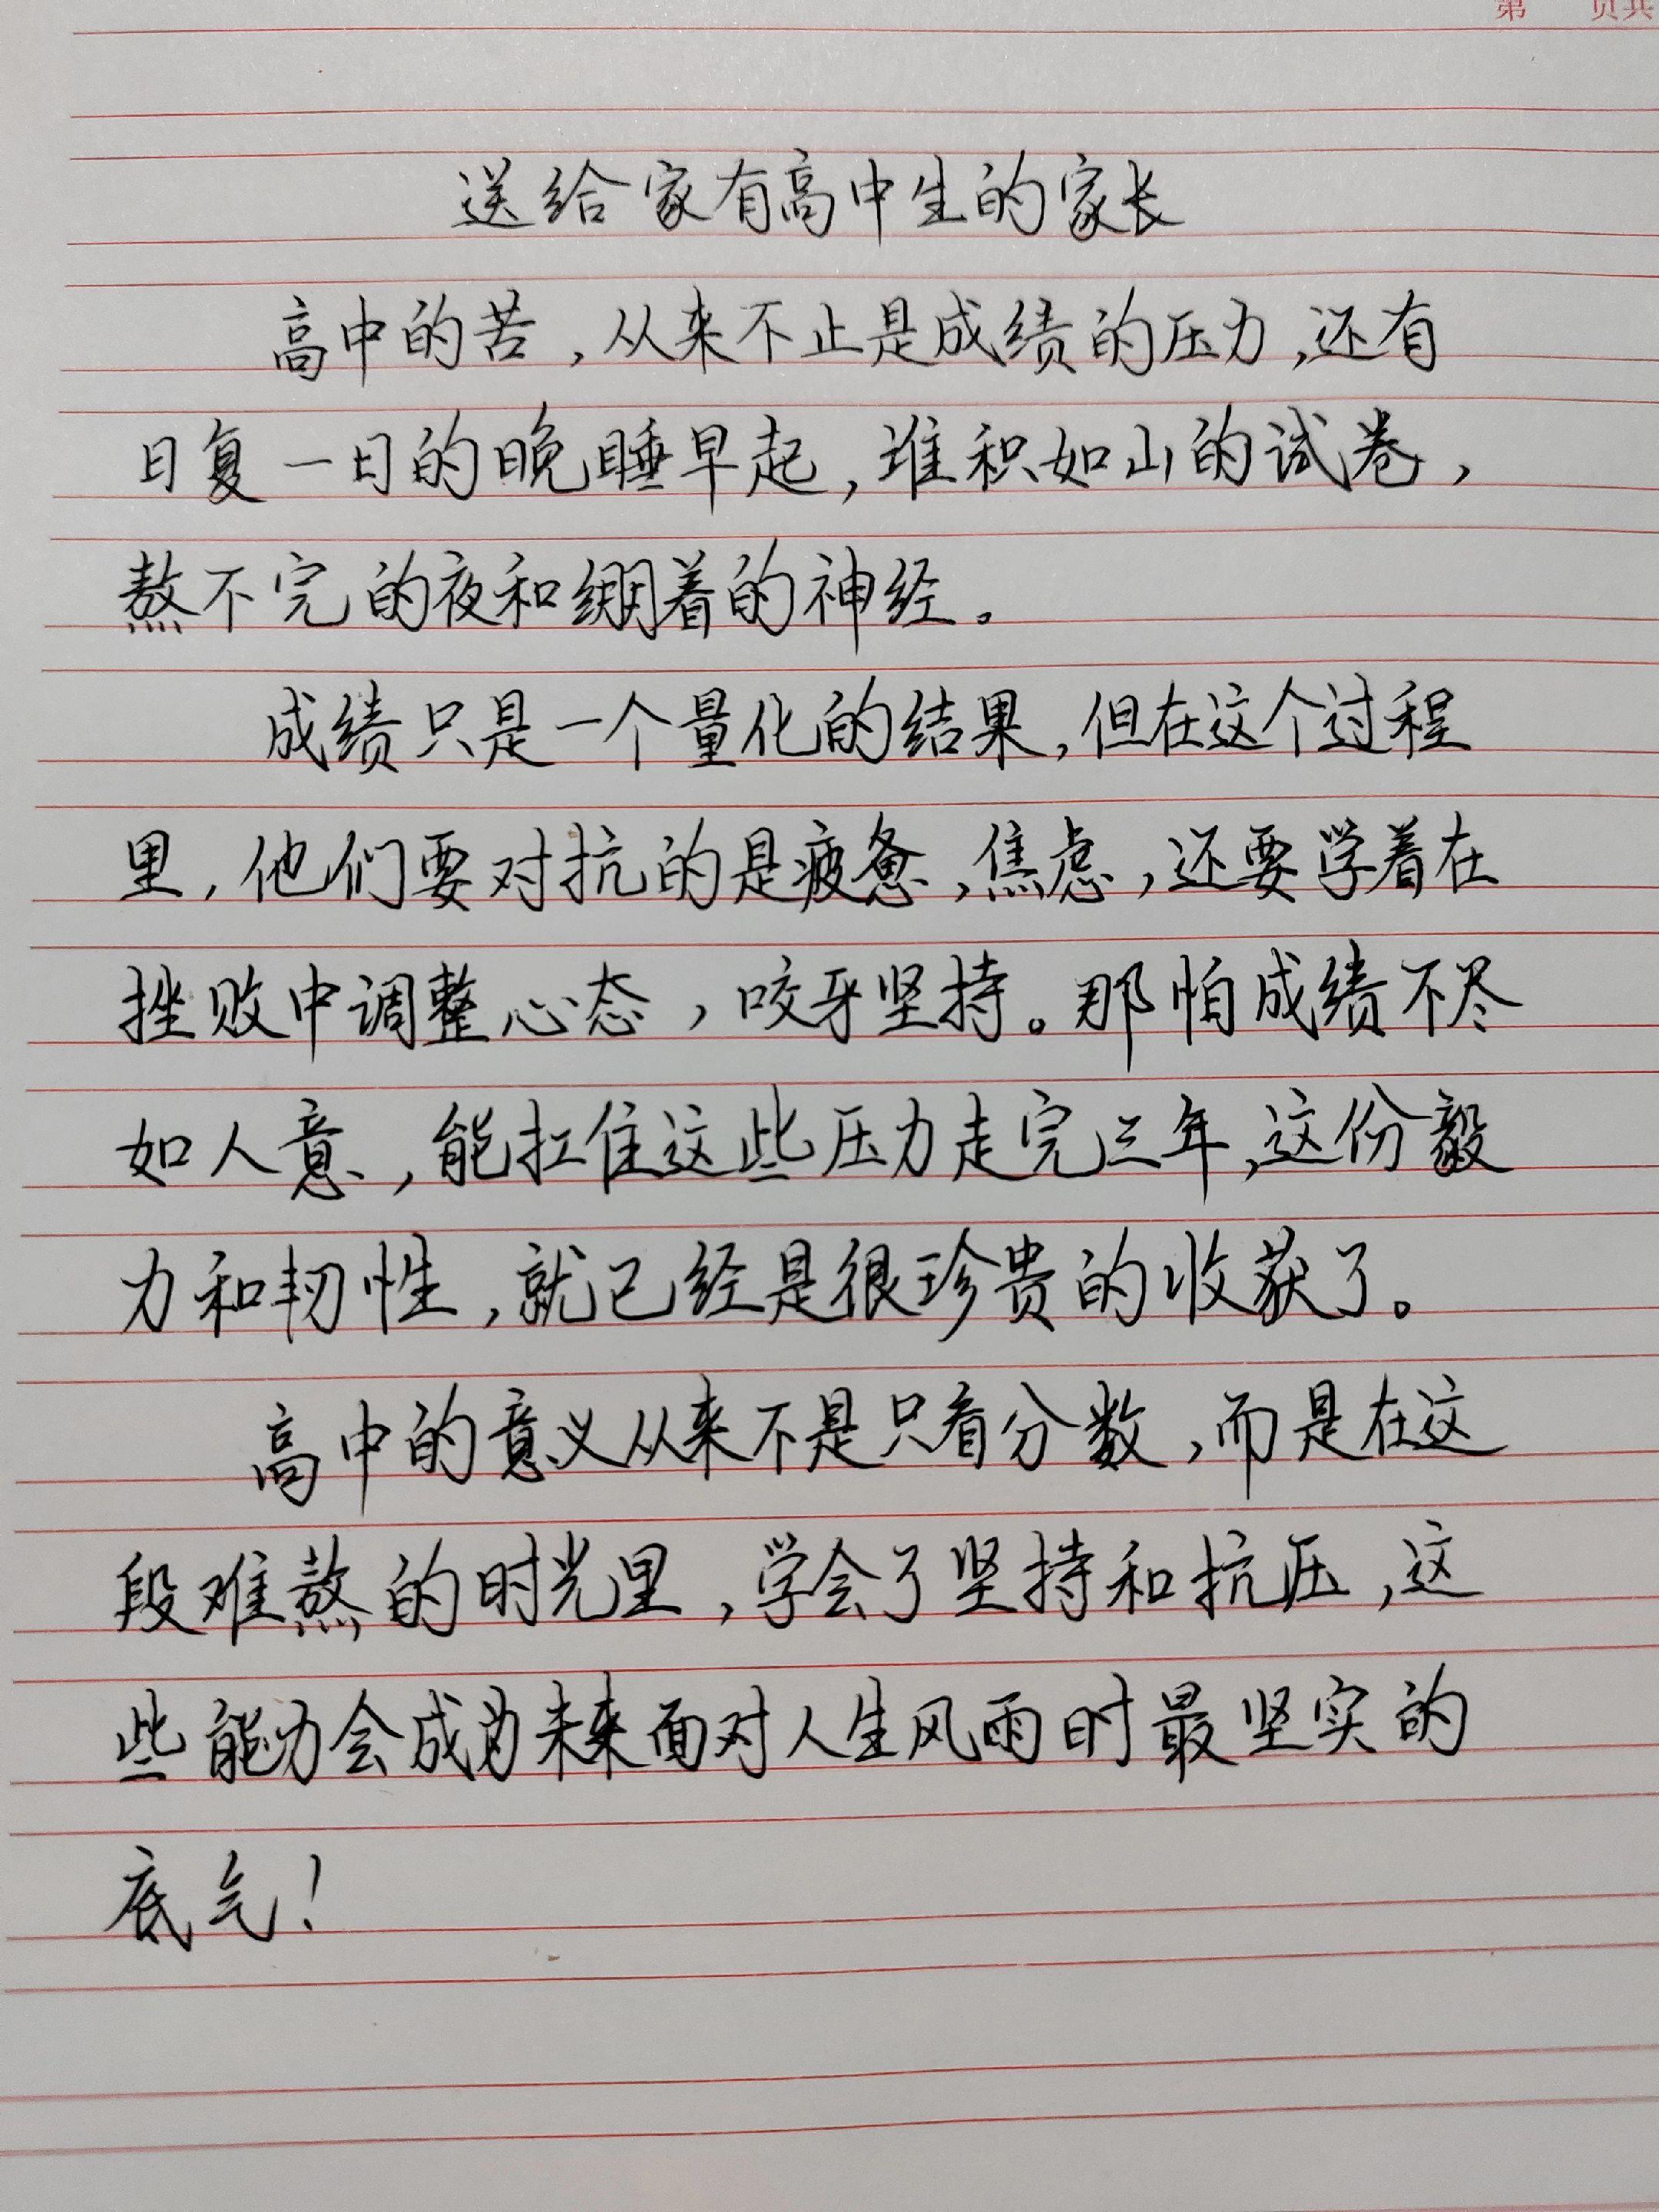 第 页共
送给家有高中生的家长
高中的苦,从来不止是成绩的压力,还有
日复一日的晚睡早起,堆积如山的试卷,
熬不完的夜和绷着的神经。
成绩只是一个量化的结果,但在这个过程
里,他们要对抗的是疲惫,焦虑,还要学着在
挫败中调整心态,咬牙坚持。那怕成绩不尽
如人意,能扛住这些压力走完三年,这份毅
力和韧性,就已经是很珍贵的收获了。
高中的意义从来不是只看分数,而是在这
段难熬的时光里,学会了坚持和抗压,这
些能力会成为未来面对人生风雨时最坚实的
底气!